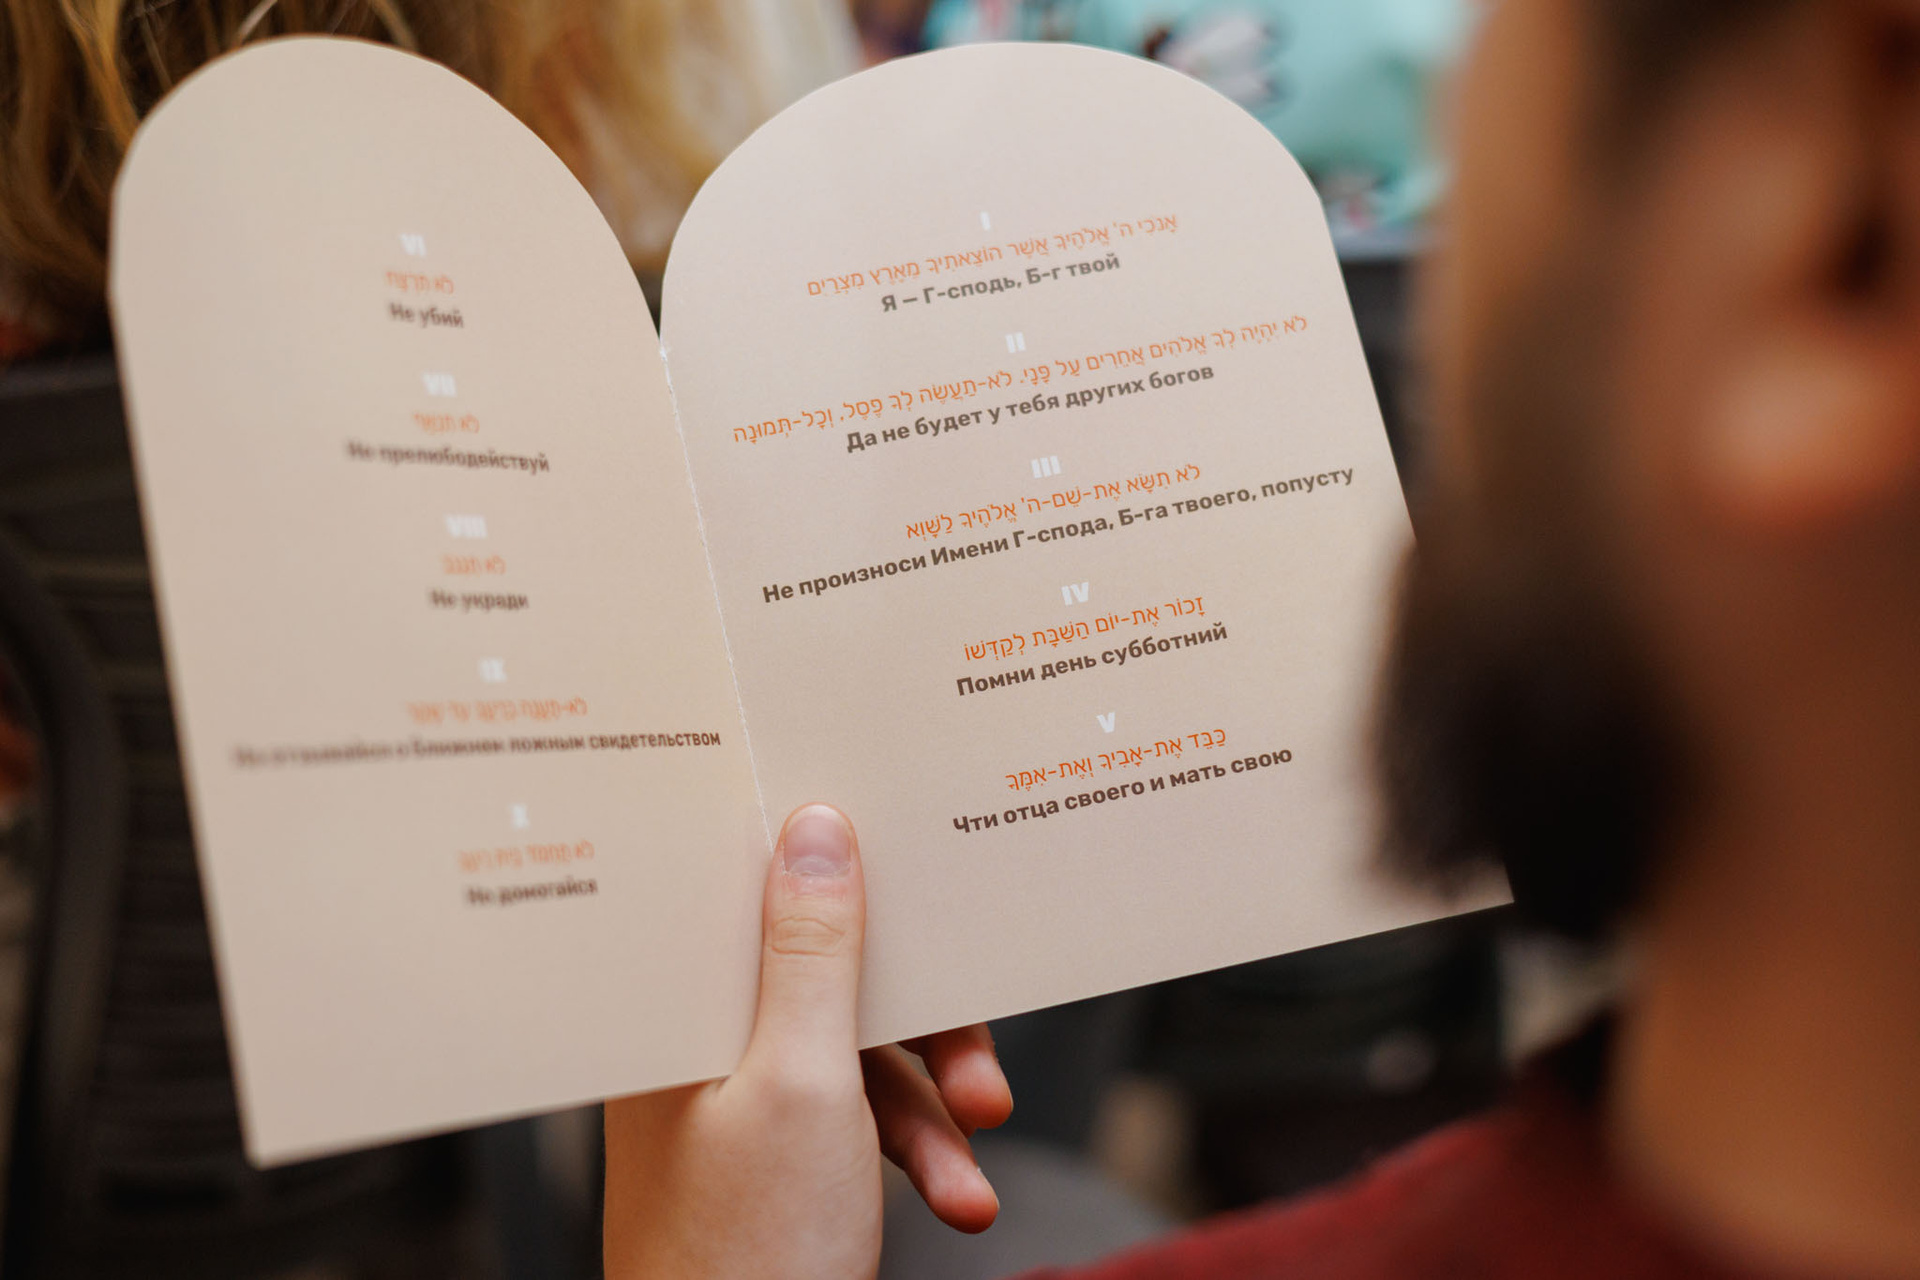 I
אָנֹכִי ה' אֱלֹהֶיךָ אֲשֶׁר הוֹצֵאתִיךָ מֵאֶרֶץ מִצְרַיִם
Я – Г-сподь, Б-г твой
II
לֹא יִהְיֶה לְךָ אֱלֹהִים אֲחֵרִים עַל פָּנָי. לֹא-תַעֲשֶׂה לְךָ פֶסֶל, וְכָל-תְּמוּנָה
Да не будет у тебя других богов
III
לֹא תִשָּׂא אֶת-שֵׁם-ה' אֱלֹהֶיךָ לַשָּׁוְא
Не произноси Имени Г-спода, Б-га твоего, попусту
IV
זָכוֹר אֶת-יוֹם הַשַּׁבָּת לְקַדְּשׁוֹ
Помни день субботний
V
כַּבֵּד אֶת-אָבִיךָ וְאֶת-אִמֶּךָ
Чти отца своего и мать свою
VI
לֹא תִרְצָח
Не убий
VII
לֹא תִנְאָף
Не прелюбодействуй
VIII
לֹא תִגְנֹב
Не укради
IX
לֹא-תַעֲנֶה בְרֵעֲךָ
Не отзывайся о ближнем ложным свидетельством
X
לֹא תַחְמֹד בֵּית רֵעֶךָ
Не домогайся